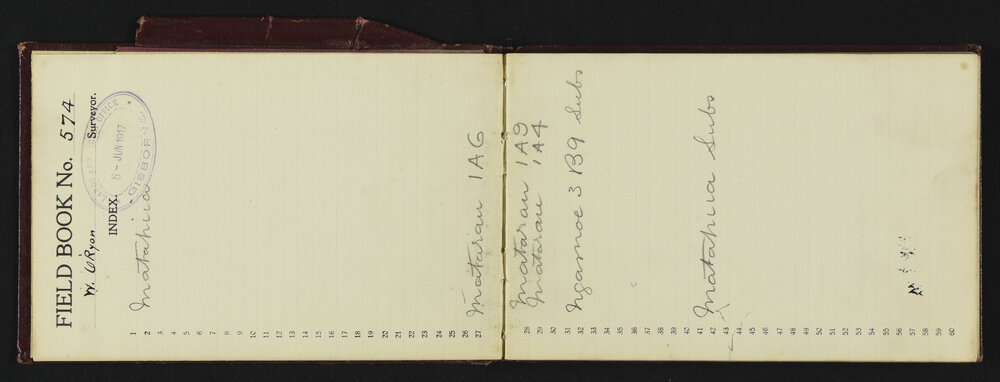 FIELD BOOK No. 574
Surveyor.
INDEX.
6 - JUN 1917
GISBORNE
OFFICE
1
2 Matahiia
3
4
5
6
7
8
9
10
11
12
13
14
15
16
17
18
19
20
21
22
23
24
25
26
27 Matarau 1A6
28 Matarau 1A9
29 Matarau 1A4
30
31
32 Ngamoe 3 B9 Subs
33
34
35
36
37
38
39
40
41
42 Matahiia Subs
43
44
45
46
47
48
49
50
51
52
53
54
55
56
57
58
59
60